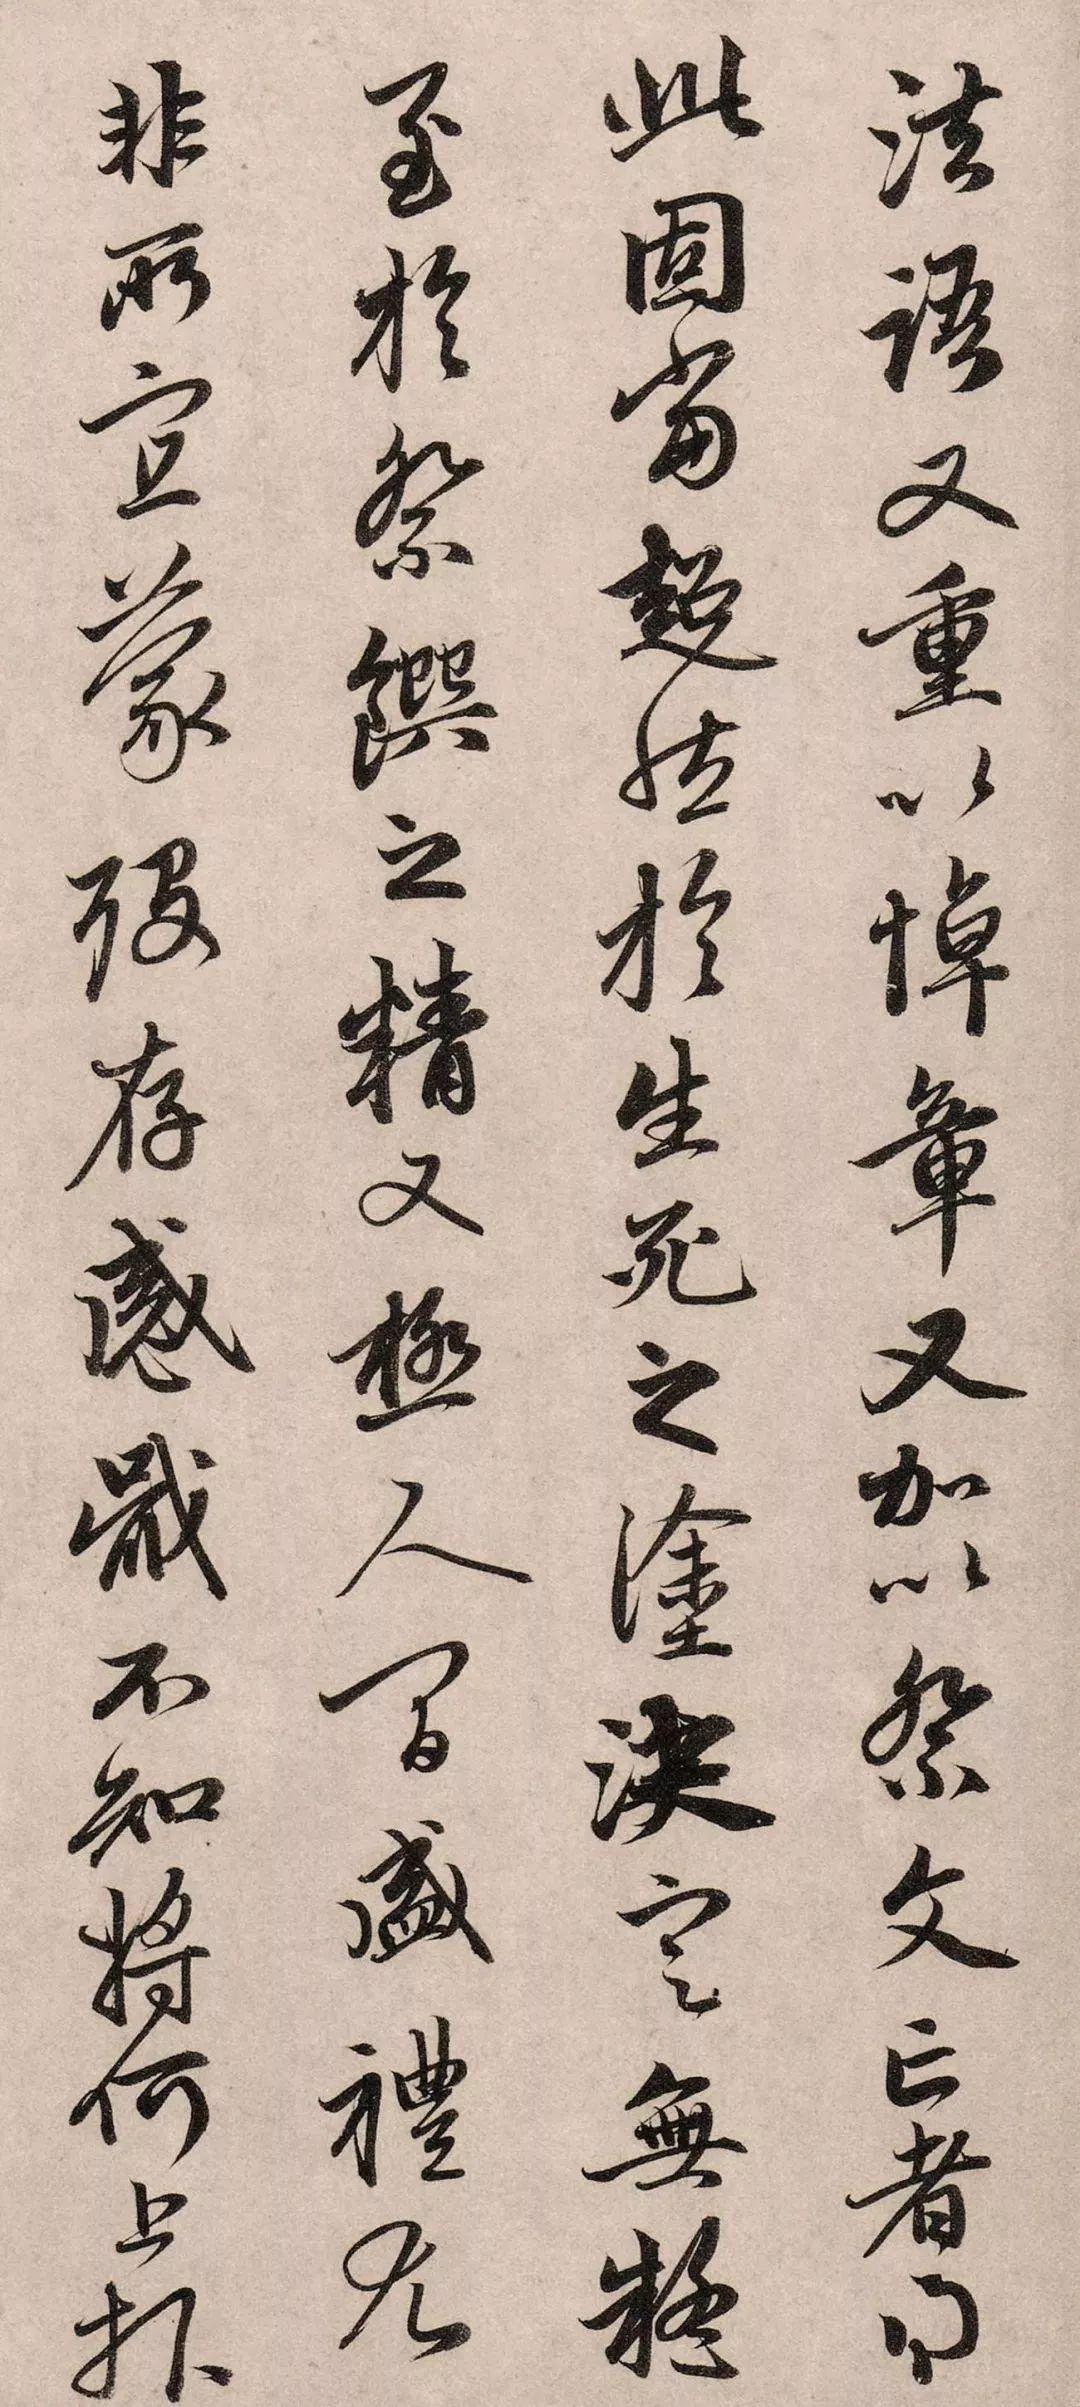 法語又重以悼章又加以祭文亡者得
此固當超然於生死之塗決定無疑
至於祭饌之精又極人間盛禮尤
非所宜蒙歿存感戴不知將何上報